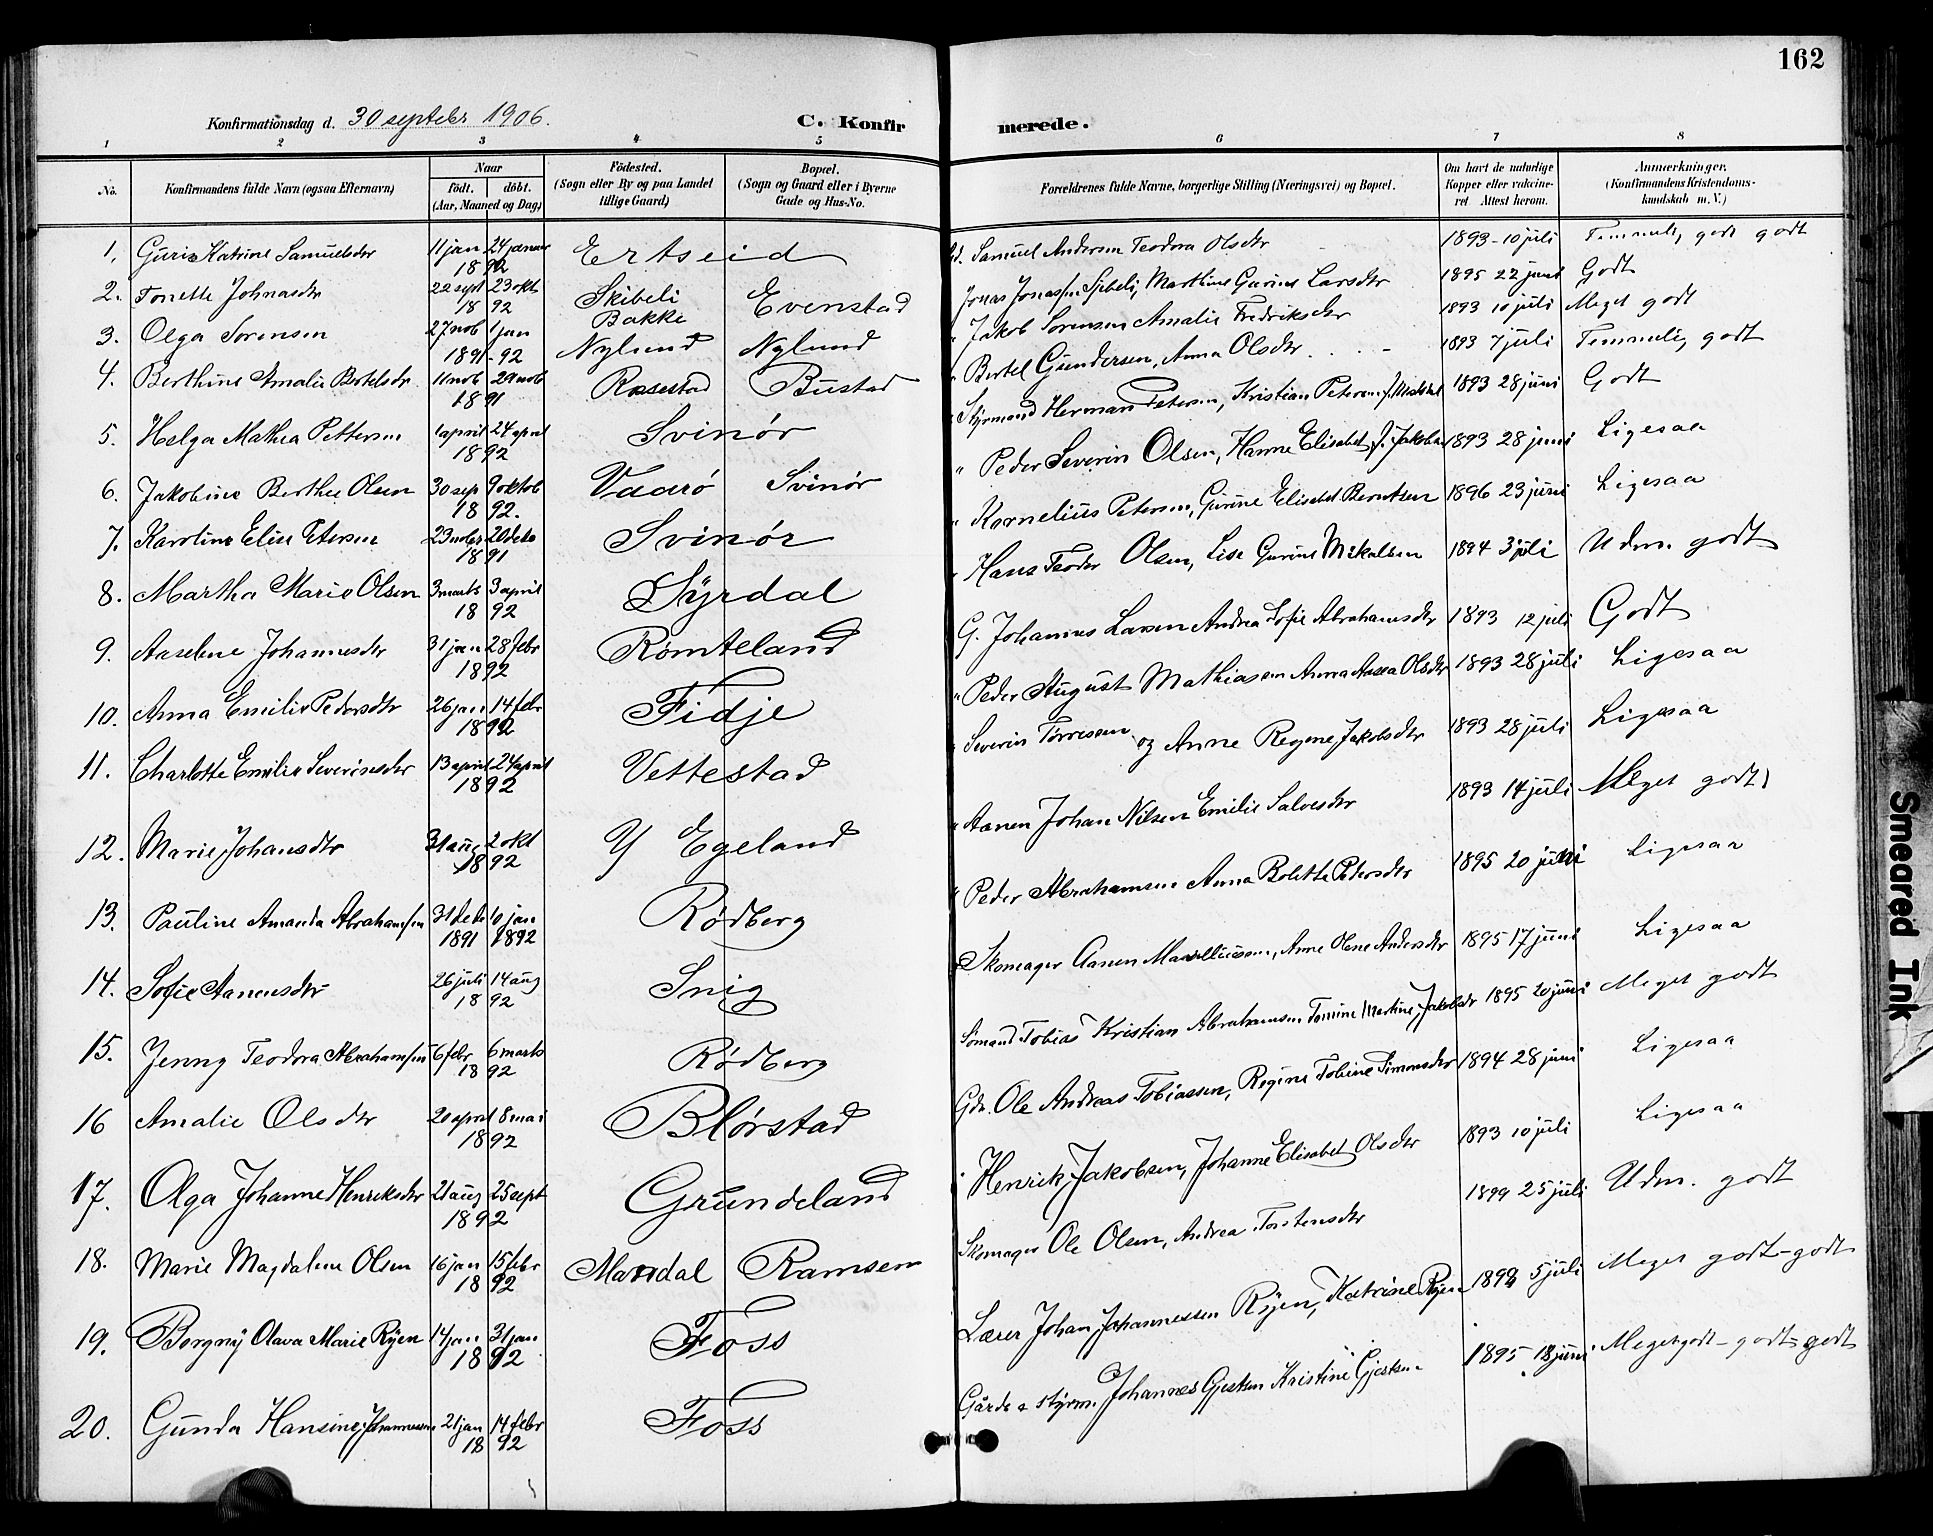 162
Konfirmationsdag d. 30 septebr 1906.
C. Konfirmerede.
1 2 3 4 5 6 7 8
No.
Konfirmandens fulde Navn (ogsaa Efternavn)
Naar
födt. döbt.
(Aar, Maaned og Dag)
Födested.
(Sogn eller By og paa Landet
tillige Gaard)
Bopæl.
(Sogn og Gaard eller i Byerne
Gade og Hus-No.
Forældrenes fulde Navne, borgerlige Stilling (Næringsvei) og Bopæl.
Om havt de naturlige
Kopper eller vakcine-
ret Attest herom.
Anmerkninger.
(Konfirmandens Kristendoms-
kundskab m. V.)
1. Gurie Katrine Samuelsdtr 11 jan 24 januar 1892 Ertseid Samuel Andersen Teodora Olsdtr 1893 - 10 juli Temmeli, godt godt
2. Tonette Johnasdtr 22 sept 23 okt 1892 Skibeli Bakke Evenstad Jonas Jonassen Sjebeli, Marthine Gurine Larsdtr 1895 22 juni Godt
3. Olga Sorensen 27 nob 1 jan 1891-92 Nylund Nylund " Jakob Sorensen Amalie Fredriksdtr 1893 10 juli Meget godt
4. Berthine Amalie Bertelsdtr 11 nob 29 nob 1891 Rosestad Bustad " Bertel Gundersen, Anna Olsdtr 1893 7 juli Temmeli, godt
5. Helga Mathea Pettersen 1 april 24 april 1892 Svinör Styrmand Herman Petersen, Kristian Petersen 1893 28 juni Godt
6. Jakobine Berthe Olsen 30 sep 9 oktob 1892. Vaarö Svinör " Peder Severin Olsen, Hanne Elisabet f. Jakobsen 1893 28 juni Ligesaa
7. Karoline Elise Petersen 23 nobr 20 debr 1891 Svinör " Kornelius Petersen, Gurine Elisabet Berntsen 1896 23 juni Ligesaa
8. Martha Marie Olsen 3 marts 3 april 1892 Syrdal " Hans Teodor Olsen, Lise Gurine Mikalsen 1894 3 juli Udm. godt
9. Aaselene Johannesdtr 31 jan 28 febr 1892 Römteland G. Johannes Larsen Andrea Sofie Abrahamsdtr 1893 12 juli Godt
10. Anna Emilie Pedersdtr 26 jan 14 febr 1892 Fidje " Peder August Mathiasen Anna Aasea Olsdtr 1893 28 juli Ligesaa
11. Charlotte Emilie Severinsdtr 13 april 24 april 1892 Vettestad Severin Torresen og Anne Regine Jakobsdtr 1893 28 juli Ligesaa
12. Marie Johansdtr 31 aug 2 okt 1892 Y Egeland " Aanen Johan Nilsen Emilie Salvesdtr 1893 14 juli Meget godt
13. Pauline Amanda Abrahamsen 31 deb 10 jan 1891 1892 Rödberg " Peder Abrahamsen Anna Bolette Petersdtr 1895 20 juni Ligesaa
14. Sofie Aanensdtr 26 juli 14 aug 1892 Snig Skomager Aanen Marselliussen, Anne Olene Andersdtr 1895 17 juni Ligesaa
15. Jenny Teodora Abrahamsen 6 febr 6 marts 1892 Rödberg Sömand Tobias Kristian Abrahamsen Tomine Martine Jakobsdtr 1895 20 juni Meget godt
16 Amalie Olsdtr 20 april 8 mai 1892 Blörstad Gdr. Ole Andreas Tobiassen, Regine Tobine Simonsdtr 1894 28 juni Ligesaa
17. Olga Johanne Henriksdtr 21 aug 25 sept 1892 Grundeland " Henrik Jakobsen, Johanne Elisabet Olsdtr 1893 10 juli Ligesaa
18. Marie Magdalene Olsen 16 jan 15 febr 1892 Mandal Ramsem Skomager Ole Olsen, Andrea Torstensdtr 1899 25 juli Udm. godt
19. Borgny Olava Marie Ryen 14 jan 31 jan 1892 Foss Lærer Johan Johannessen Ryen, Katrine Ryen 1899 5 juli Meget godt - godt
20. Gunda Hansine Johannessen 21 jan 14 febr 1892 Foss Gårdr & styrm. Johannes Gjertsen Kristine Gjertsen 1895 18 juni Meget godt - godt - godt
Smeared Ink